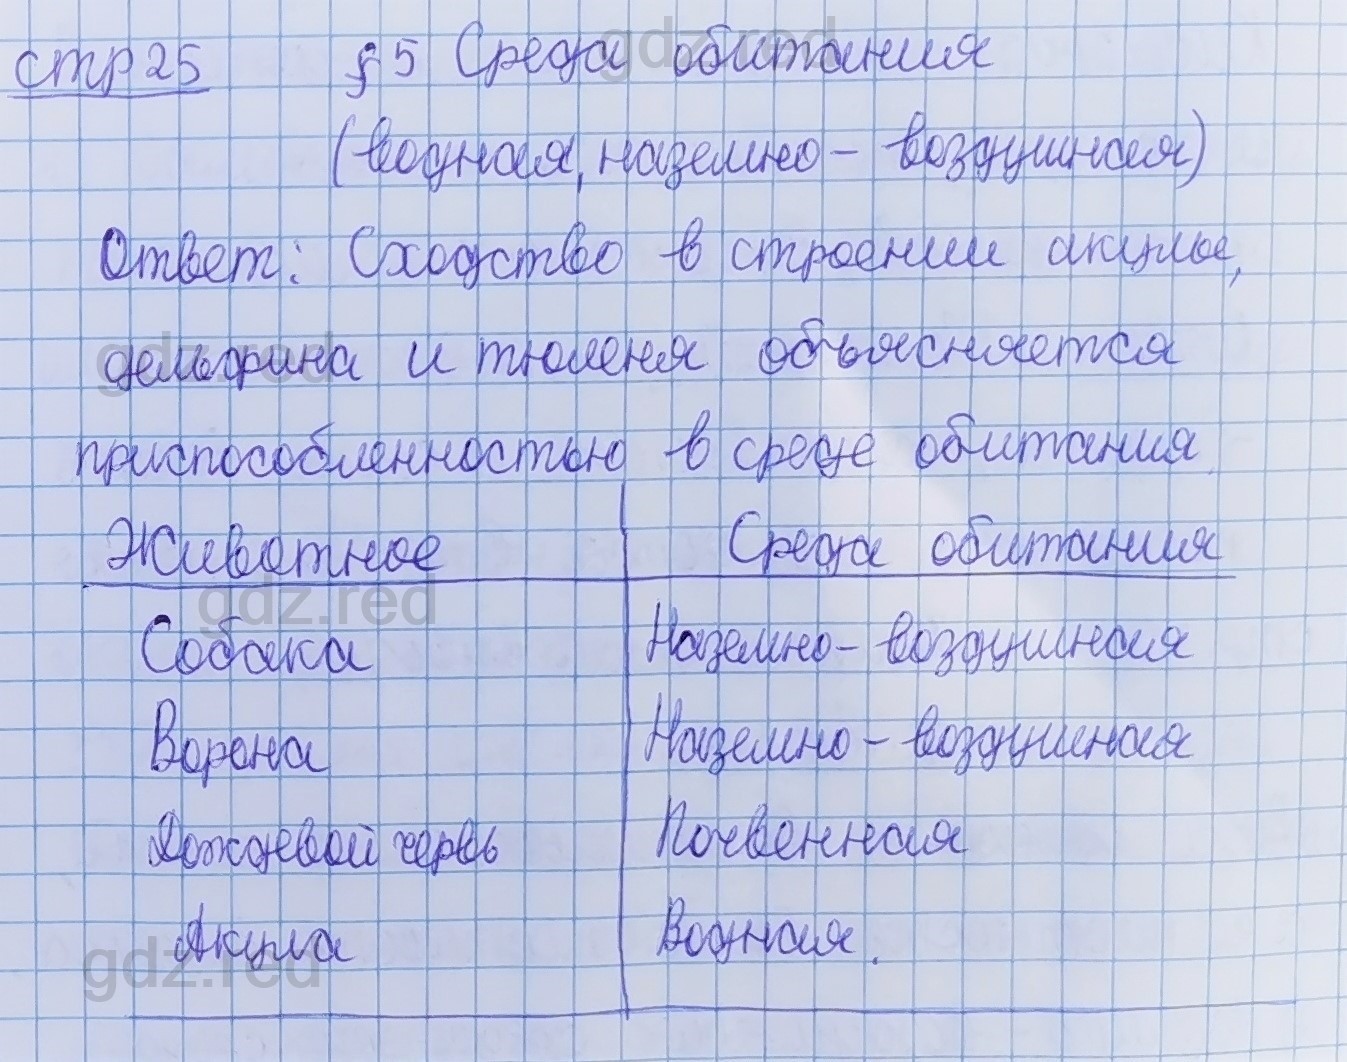 стр 25 § 5 Среда обитания
(водная, наземно - воздушная)
Ответ: Сходство в строении акулы,
дельфина и тюленя объясняется
приспособленностью в среде обитания.
Животное Среда обитания
Собака Наземно - воздушная
Ворона Наземно - воздушная
Дождевой червь Почвенная
Акула Водная.
gdz.red
gdz.red
gdz.red
gdz.red